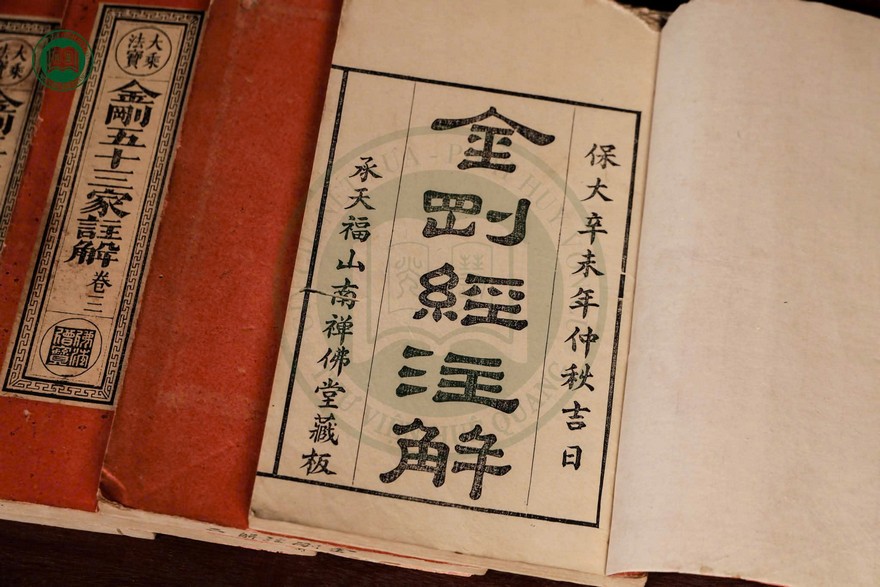 保大辛未年仲秋吉日
金剛經注解
承天福山南禪佛堂藏板
大乘
法寶
金剛五十三家註解 卷三
佛法
僧寶